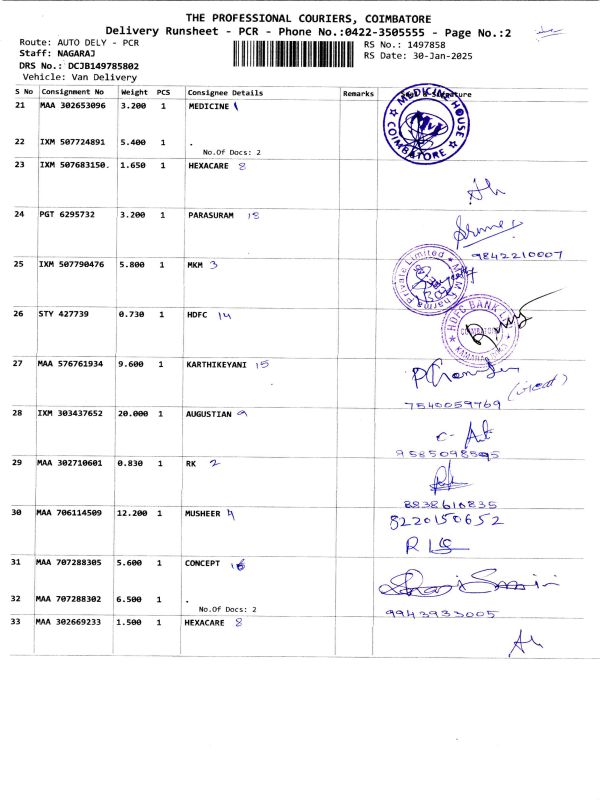 THE PROFESSIONAL COURIERS, COIMBATORE
Delivery Runsheet - PCR - Phone No.:0422-3505555 - Page No.:2
Route: AUTO DELY - PCR
RS No.: 1497858
Staff: NAGARAJ
RS Date: 30-Jan-2025
DRS No.: DCJB149785802
Vehicle: Van Delivery
S No Consignment No Weight PCS Consignee Details Remarks Signature
21 MAA 302653096 3.200 1 MEDICINE 1
MEDICINE HOUSE COIMBATORE
22 IXM 507724891 5.400 1 .
No.Of Docs: 2
23 IXM 507683150. 1.650 1 HEXACARE 8
24 PGT 6295732 3.200 1 PARASURAM 18
9842210007
25 IXM 507790476 5.800 1 MKM 3
MKM Pharma Private Limited
26 STY 427739 0.730 1 HDFC 14
HDFC BANK
27 MAA 576761934 9.600 1 KARTHIKEYANI 15
7540059769
28 IXM 303437652 20.000 1 AUGUSTIAN 9
9585098595
29 MAA 302710601 0.830 1 RK 2
8838610835
30 MAA 706114509 12.200 1 MUSHEER 4
8220150652
31 MAA 707288305 5.600 1 CONCEPT
32 MAA 707288302 6.500 1 .
No.Of Docs: 2
9943933005
33 MAA 302669233 1.500 1 HEXACARE 8